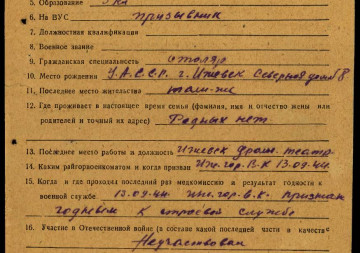 5. Образование 3 кл
6. На ВУС призывник
7. Должностная квалификация
8. Военное звание
9. Гражданская специальность столяр
10. Место рождения У.А.С.С.Р. г. Ижевск Северная дом 8
11. Последнее место жительства там-же
12. Где проживает в настоящее время семья (фамилия, имя и отчество жены или
родителей и точный их адрес) Родных нет
13. Последнее место работы и должность Ижевск драм. театр
14. Каким райгорвоенкоматом и когда призван Иж.гор.В.К 13.09.44
15. Когда и где проходил последний раз медкомиссию и результат годности к
военной службе 13.09.44 Иж.гор.В.К. признан
годным к строевой службе
16. Участие в Отечественной войне (в составе какой последней части и качестве
Не участвовал